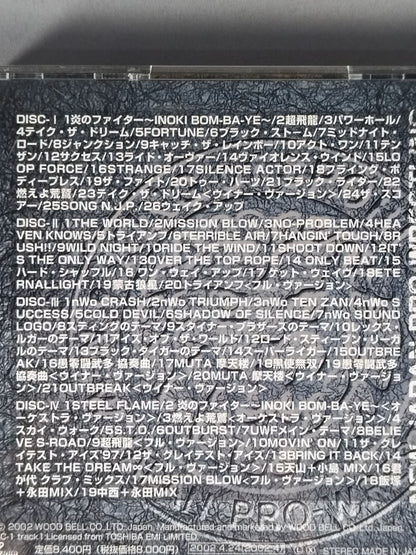 DISC-Ⅰ 1炎のファイター〜INOKI BOM-BA-YE〜/2超飛龍/3パワーホール/
4テイク・ザ・ドリーム/5FORTUNE/6ブラック・ストーム/7ミッドナイト・
ロード/8ジャンクション/9キャッチ・ザ・レインボー/10アクト・ワン/11テン
ザン/12サクセス/13ライド・オーヴァー/14ヴァイオレンス・ウインド/15LO
OP FORCE/16STRANGE/17SILENCE ACTOR/18フライング・ボ
ディープレス/19ザ・ファイト/20トゥー・ハーツ/21ブラック・ライダー/22
燃えよ荒鷲/23テイク・ザ・ドリーム<ヴォーカル・ヴァージョン>/24ザ・スコ
アー/25SONG N.J.P./26ウェイク・アップ
DISC-Ⅱ 1THE WORLD/2MISSION BLOW/3NO-PROBLEM/4HEA
VEN KNOWS/5トライアンフ/6TERRIBLE AIR/7HANGIN' TOUGH/8R
USH!!/9WILD NIGHT/10RIDE THE WIND/11SHOOT DOWN/12IT'
S THE ONLY WAY/13OVER THE TOP ROPE/14 ONLY BEAT/15
ハード・シャッフル/16 ワン・ウェイ・アップ/17ゲット・ウェイヴ/18ETER
NALLIGHT/19蒙古狼星/20トライアンフ<フル・ヴァージョン>
DISC-Ⅲ 1nWo CRASH/2nWo TRIUMPH/3nWo TEN ZAN/4nWo S
UCCESS/5COLD DEVIL/6SHADOW OF SILENCE/7nWo SOUND
LOGO/8スティングのテーマ/9スタイナー・ブラザーズのテーマ/10レックス・
ルガーのテーマ/11アイズ・オブ・ザ・ワールド/12ロード・スティーブン・リーガ
ルのテーマ/13ブラック・タイガーのテーマ/14スーパーライガー/15OUTBRE
AK/16愚零闘武多 協奏曲/17MUTA 摩天楼/18黒使無双/19愚零闘武多
ヴァージョン>/21OUTBREAK<ヴァージョン>
DISC-Ⅳ 1STEEL FLAME/2 炎のファイター〜INOKI BOM-BA-YE〜<オ
ーケストラ・ヴァージョン>/3燃えよ荒鷲<オーケストラ・ヴァージョン>/4
スカイ・ウォーク/5S.T.O./6OUTBURST/7UWFメイン・テーマ/8BELIE
VE S-ROAD/9超飛龍<フル・ヴァージョン>/10MOVIN' ON/11ザ・グレ
イテスト・アイズ'97/12ザ・グレイテスト・アイズ/13BRING IT BACK/14
TAKE THE DREAM∞<フル・ヴァージョン>/15天山+小島 MIX/16君
が代 クラブ・ミックス/17MISSION BLOW<フル・ヴァージョン>/18飯塚
+永田MIX/19中西+永田MIX
© 2002 WOOD BELL CO.,LTD. Japan. Manufactured and marketed by WOOD BELL CO.,LTD. Japan.
Licensed from TOSHIBA EMI LIMITED.
定価8,400円(税抜価格8,000円) 2002.4.24(2002.4) STEREO MADE IN